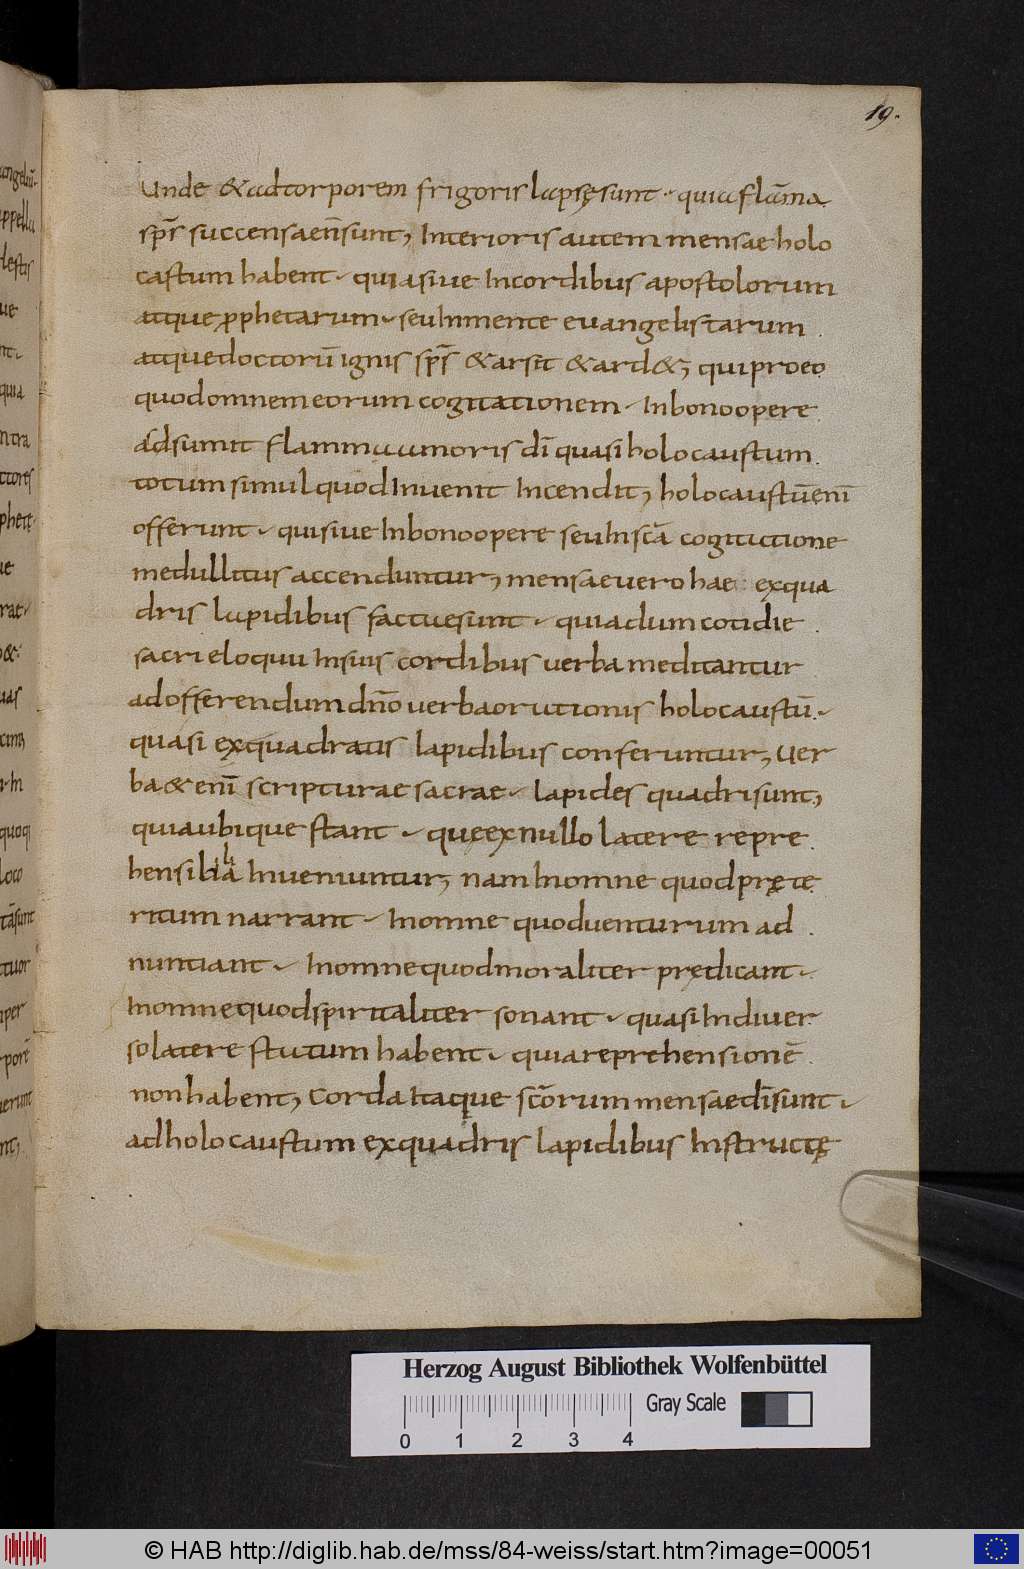 19.
Unde & ad torporem frigoris lapsę sunt · quia flāma
sp̄s succensae n̄ sunt; Interioris autem mensae holo
caustum habent · quia siue In cordibus apostolorum
atque prophetarum · seu In mente euangelistarum
atque doctorū ignis sp̄s & arsit & ard&; qui pro eo
quod omnem eorum cogitationem · In bono opere
adsumit flamma amoris dī quasi holocaustum
totum simul quod Inuenit Incendit; holocaustū enī
offerunt · qui siue In bono opere seu In scā cogitatione
medullitus accenduntur; mensae uero hae ex qua
dris lapidibus factae sunt · quia dum cotidie
sacri eloquii In suis cordibus uerba meditantur
ad offerendum dño uerba orationis holocaustū ·
quasi ex quadratis lapidibus conferuntur; Uer
ba & enī scripturae sacrae · lapides quadri sunt;
quia ubique stant · que ex nullo latere repre
hensibilia Inueniuntur; nam In omne quod pręte
ritum narrant · In omne quod uenturum ad
nuntiant · In omne quod moraliter prędicant ·
In omne quod spiritaliter sonant · quasi In diuer
so latere statum habent · quia reprehensionē
non habent; Corda Itaque scōrum mensae dī sunt ·
ad holocaustum ex quadris lapidibus Instructę
Herzog August Bibliothek Wolfenbüttel
Gray Scale
0 1 2 3 4
© HAB http://diglib.hab.de/mss/84-weiss/start.htm?image=00051